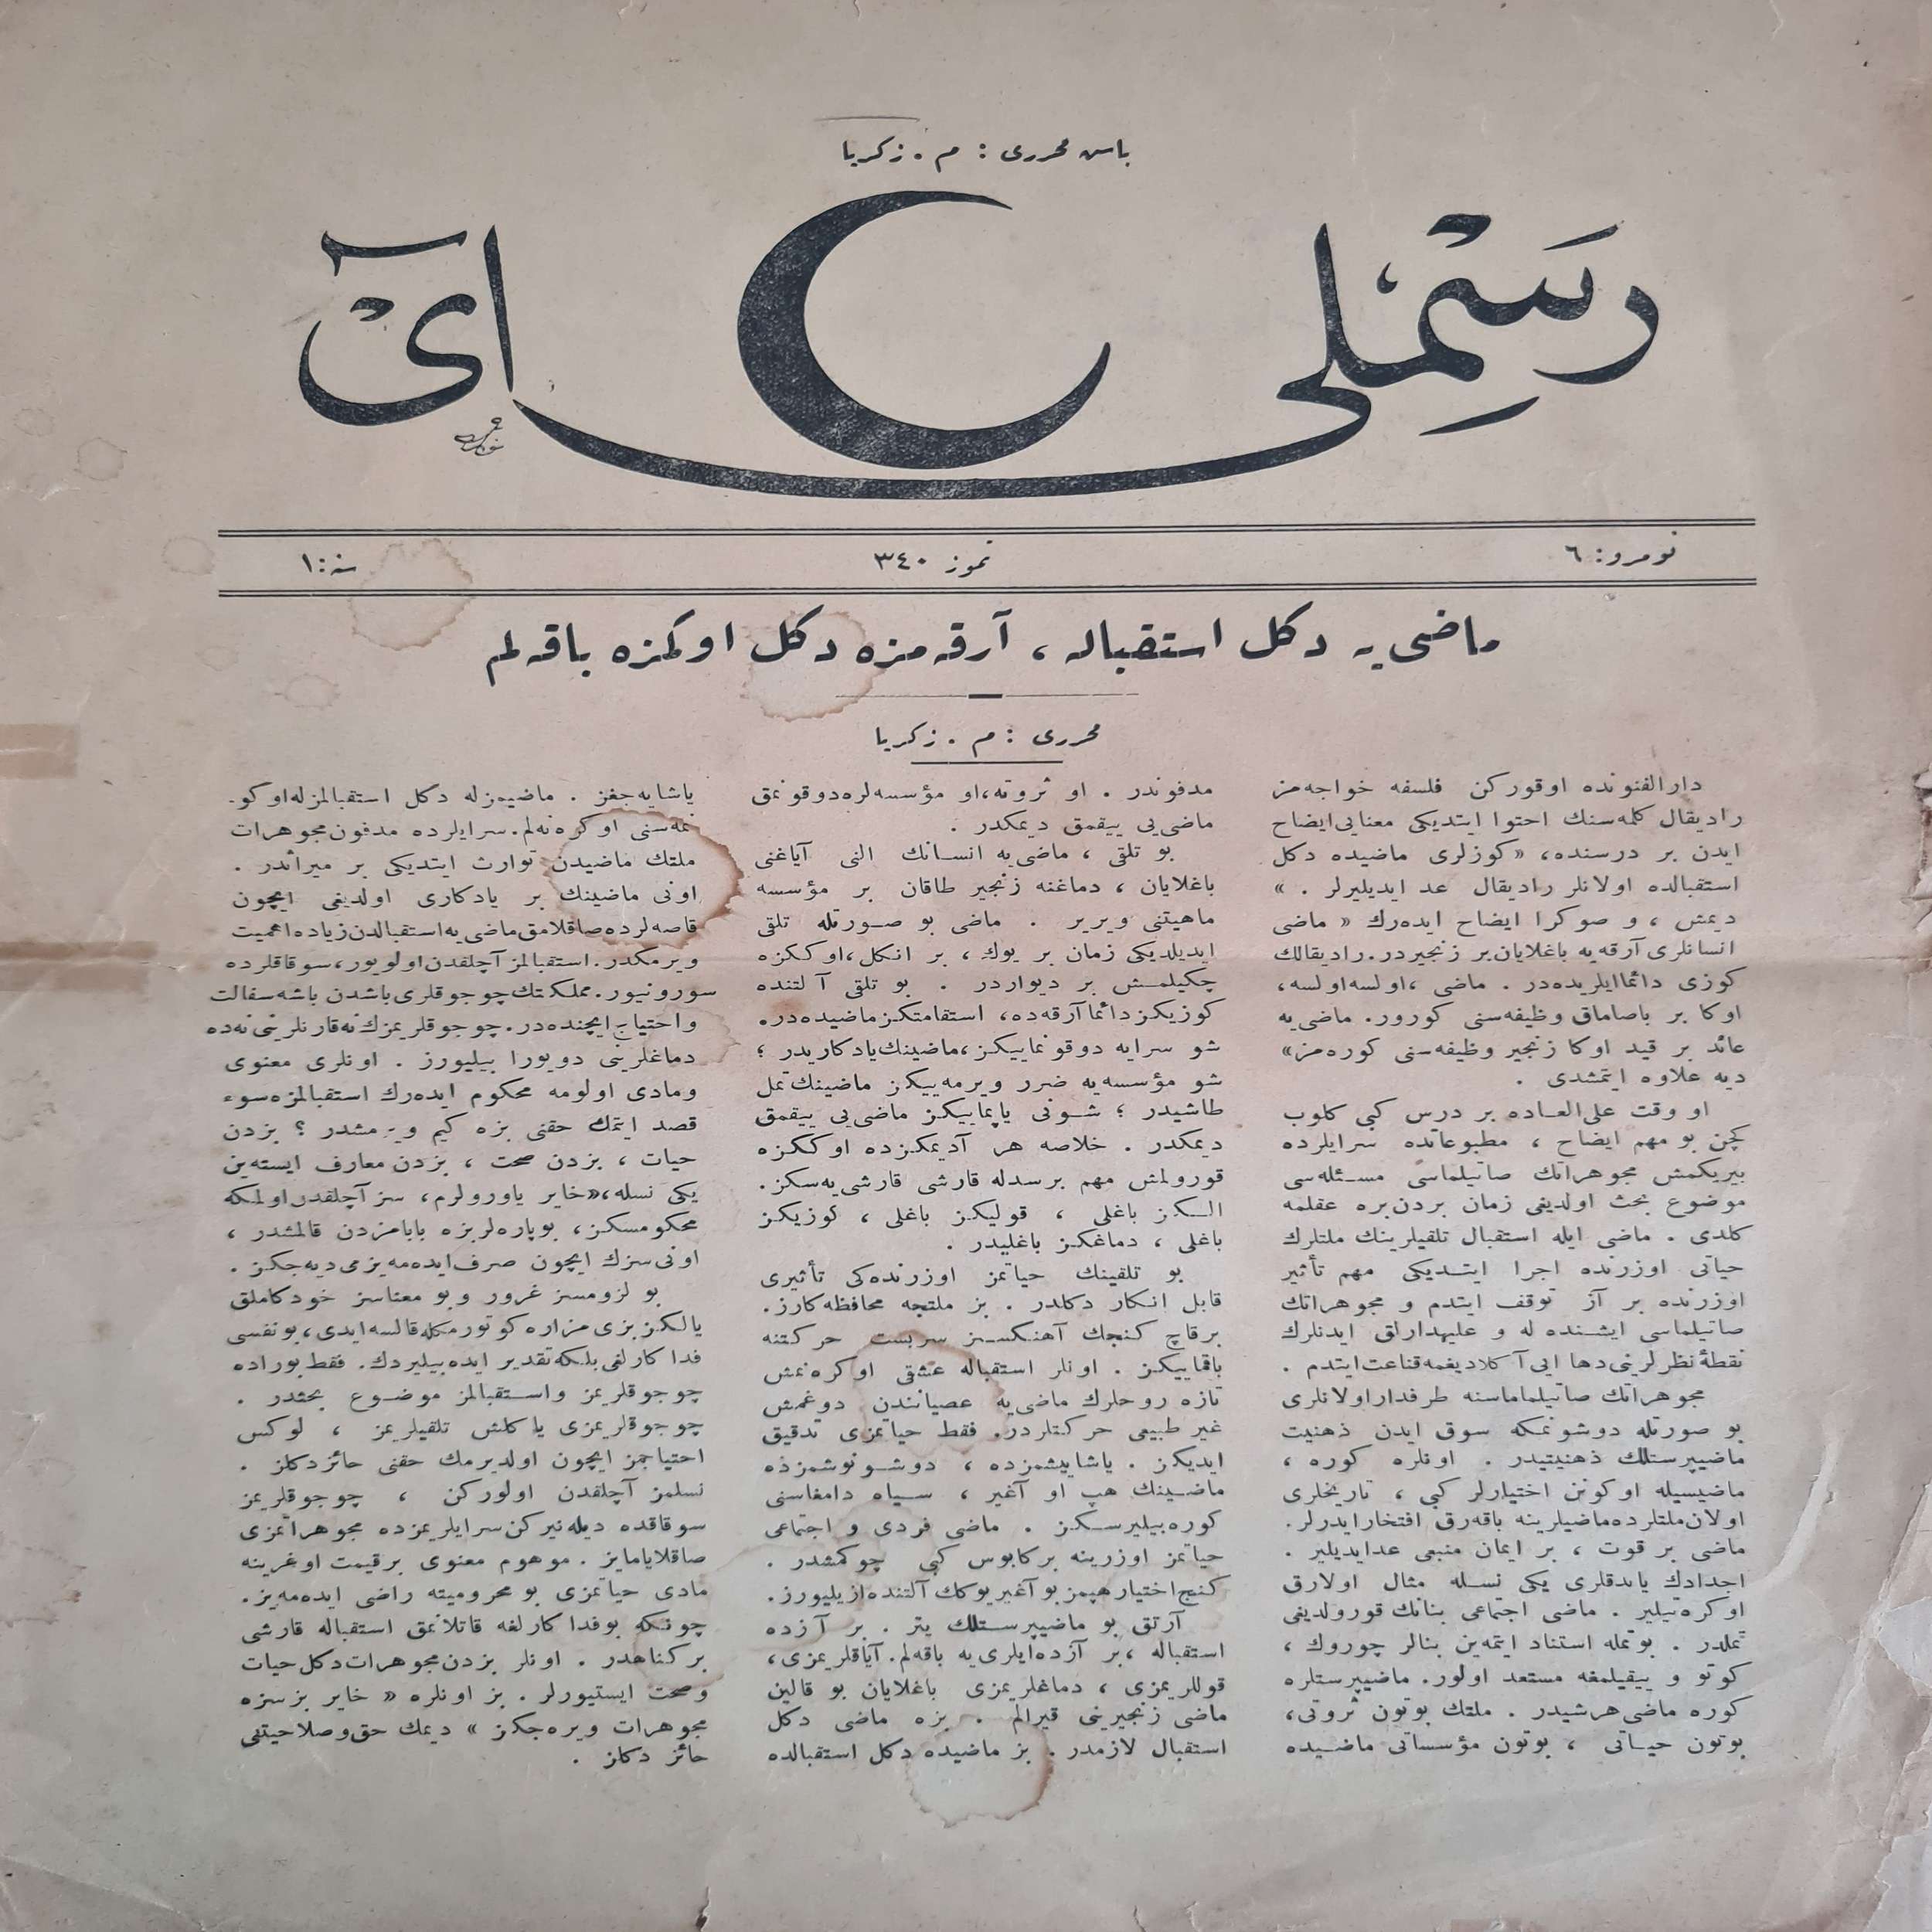 باش محرری : م . زکریا
رسملی آی
نومرو : ٦
تموز ٣٤٠
سنه : ١
ماضی‌یه دکل استقباله ، آرقه‌مزه دکل اوکمزه باقه‌لم
محرری : م . زکریا
دارالفنونده اوقورکن فلسفه خواجه‌مز
رادیقال کلمه‌سنك احتوا ایتدیکی معنایی ایضاح
ایدن بر درسنده، «کوزلری ماضیده دکل
استقبالده اولانلر رادیقال عد ایدیلیرلر . »
دیمش ، و صوکرا ایضاح ایده‌رك « ماضی
انسانلری آرقه‌یه باغلایان بر زنجیردر. رادیقالك
کوزی دائما ایلریده‌در . ماضی ، اولسه اولسه،
اوکا بر باصاماق وظیفه‌سنی کورور. ماضی‌یه
عائد بر قید اوکا زنجیر وظیفه‌سنی کوره‌مز»
دیه علاوه ایتمشدی .
او وقت علی‌العاده بر درس کبی کلوب
کچن بو مهم ایضاح ، مطبوعاتده سرایلرده
بیریکمش مجوهراتك صاتیلماسی مسئله‌سی
موضوع بحث اولدیغی زمان بردن‌بره عقلمه
کلدی . ماضی ایله استقبال تلقیلرینك ملتلرك
حیاتی اوزرنده اجرا ایتدیکی مهم تأثیر
اوزرنده بر آز توقف ایتدم و مجوهراتك
صاتیلماسی ایشنده له و علیهدارلق ایدنلرك
نقطهٔ نظرلرینی دها ایی آکلادیغمه قناعت ایتدم .
مجوهراتك صاتیلماماسنه طرفدار اولانلری
بو صورتله دوشونمکه سوق ایدن ذهنیت
ماضیپرستلك ذهنیتیدر . اونلره کوره ،
ماضیسیله اوکونن اختیارلر کبی ، تاریخلری
اولان ملتلرده ماضیلرینه باقه‌رق افتخار ایدرلر.
ماضی بر قوت ، بر ایمان منبعی عد ایدیلیر .
اجدادك یاپدقلری یکی نسله مثال اولارق
اوکره‌تیلیر . ماضی اجتماعی بنانك قورولدیغی
تملدر . بو تمله استناد ایتمه‌ین بنالر چوروك ،
کوتو و ییقیلمغه مستعد اولور. ماضیپرستلره
کوره ماضی هرشیدر . ملتك بوتون ثروتی،
بوتون حیاتی ، بوتون مؤسساتی ماضیده
مدفوندر . او ثروته، او مؤسسه‌لره دوقونمق
ماضی‌یی ییقمق دیمکدر .
بو تلقی ، ماضی‌یه انسانك الی آیاغنی
باغلایان ، دماغنه زنجیر طاقان بر مؤسسه
ماهیتنی ویریر . ماضی بو صورتله تلقی
ایدیلدیکی زمان بر یوك ، بر انکل ، اوککزه
چکیلمش بر دیواردر . بو تلقی آلتنده
کوزیکز دائما آرقه‌ده، استقامتکز ماضیده‌در.
شو سرایه دوقونماییکز، ماضینك یادکاریدر ؛
شو مؤسسه‌یه ضرر ویرمه‌ییکز ماضینك تمل
طاشیدر ؛ شونی یاپماییکز ماضی‌یی ییقمق
دیمکدر . خلاصه هر آدیمکزده اوککزه
قورولمش مهم برسدله قارشی قارشی‌یه‌سکز.
الکز باغلی ، قولیکز باغلی ، کوزیکز
باغلی ، دماغکز باغلیدر .
بو تلقینك حیاتمز اوزرنده‌کی تأثیری
قابل انکار دکلدر . بز ملتجه محافظه‌کارز.
برقاچ کنجك آهنکسز سربست حرکتنه
باقماییکز . اونلر استقباله عشقی اوکره‌نمش
تازه روحلرك ماضی‌یه عصیانندن دوغمش
غیر طبیعی حرکتلردر. فقط حیاتمزی تدقیق
ایدیکز . یاشاییشمزده ، دوشونوشمزده
ماضینك هپ او آغیر ، سیاه دامغاسنی
کوره‌بیلیرسکز . ماضی فردی و اجتماعی
حیاتمز اوزرینه برکابوس کبی چوکمشدر .
کنج اختیار هپمز بو آغیر یوکك آلتنده ازیلیورز.
آرتق بو ماضیپرستلك یتر . بر آزده
استقباله ، بر آزده ایلری‌یه باقه‌لم. آیاقلریمزی،
قوللریمزی ، دماغلریمزی باغلایان بو قالین
ماضی زنجیرینی قیرالم . بزه ماضی دکل
استقبال لازمدر . بز ماضیده دکل استقبالده
یاشایه‌جغز . ماضیمزله دکل استقبالمزله اوکو-
نمه‌سنی اوکره‌نه‌لم. سرایلرده مدفون مجوهرات
ملتك ماضیدن توارث ایتدیکی بر میراثدر .
اونی ماضینك بر یادکاری اولدیغی ایچون
قاصه‌لرده صاقلامق ماضی‌یه استقبالدن زیاده اهمیت
ویرمکدر. استقبالمز آچلقدن اولویور، سوقاقلرده
سورونیور. مملکتك چوجوقلری باشدن باشه سفالت
و احتیاج ایچنده‌در. چوجوقلریمزك نه قارنلرینی نه‌ده
دماغلرینی دویورا بیلیورز . اونلری معنوی
ومادی اولومه محکوم ایده‌رك استقبالمزه سوء
قصد ایتمك حقنی بزه کیم ویرمشدر ؟ بزدن
حیات ، بزدن صحت ، بزدن معارف ایسته‌ین
یکی نسله، «خایر یاورولرم، سز آچلقدن اولمکه
محکومسکز، بوپاره‌لر بزه بابامزدن قالمشدر ،
اونی سزك ایچون صرف ایده‌مه‌یز می دیه‌جکز .
بو لزومسز غرور و بو معناسز خودکاملق
یالکز بزی مزاره کوتورمکله قالسه ایدی، بو نفسی
فداکارلغی بلکه تقدیر ایده‌بیلیردك. فقط بوراده
چوجوقلریمز واستقبالمز موضوع بحثدر .
چوجوقلریمزی یاکلش تلقیلریمز ، لوکس
احتیاجمز ایچون اولدیرمك حقنی حائز دکلز .
نسلمز آچلقدن اولورکن ، چوجوقلریمز
سوقاقده دیله‌نیرکن سرایلریمزده مجوهراتمزی
صاقلایامایز . موهوم معنوی برقیمت اوغرینه
مادی حیاتمزی بو محرومیته راضی ایده‌مه‌یز.
چونکه بو فداکارلغه قاتلانمق استقباله قارشی
برکناهدر . اونلر بزدن مجوهرات دکل حیات
وصحت ایستیورلر . بز اونلره « خایر بز سزه
مجوهرات ویره‌جکز » دیمك حق وصلاحیتنی
حائز دکلز .